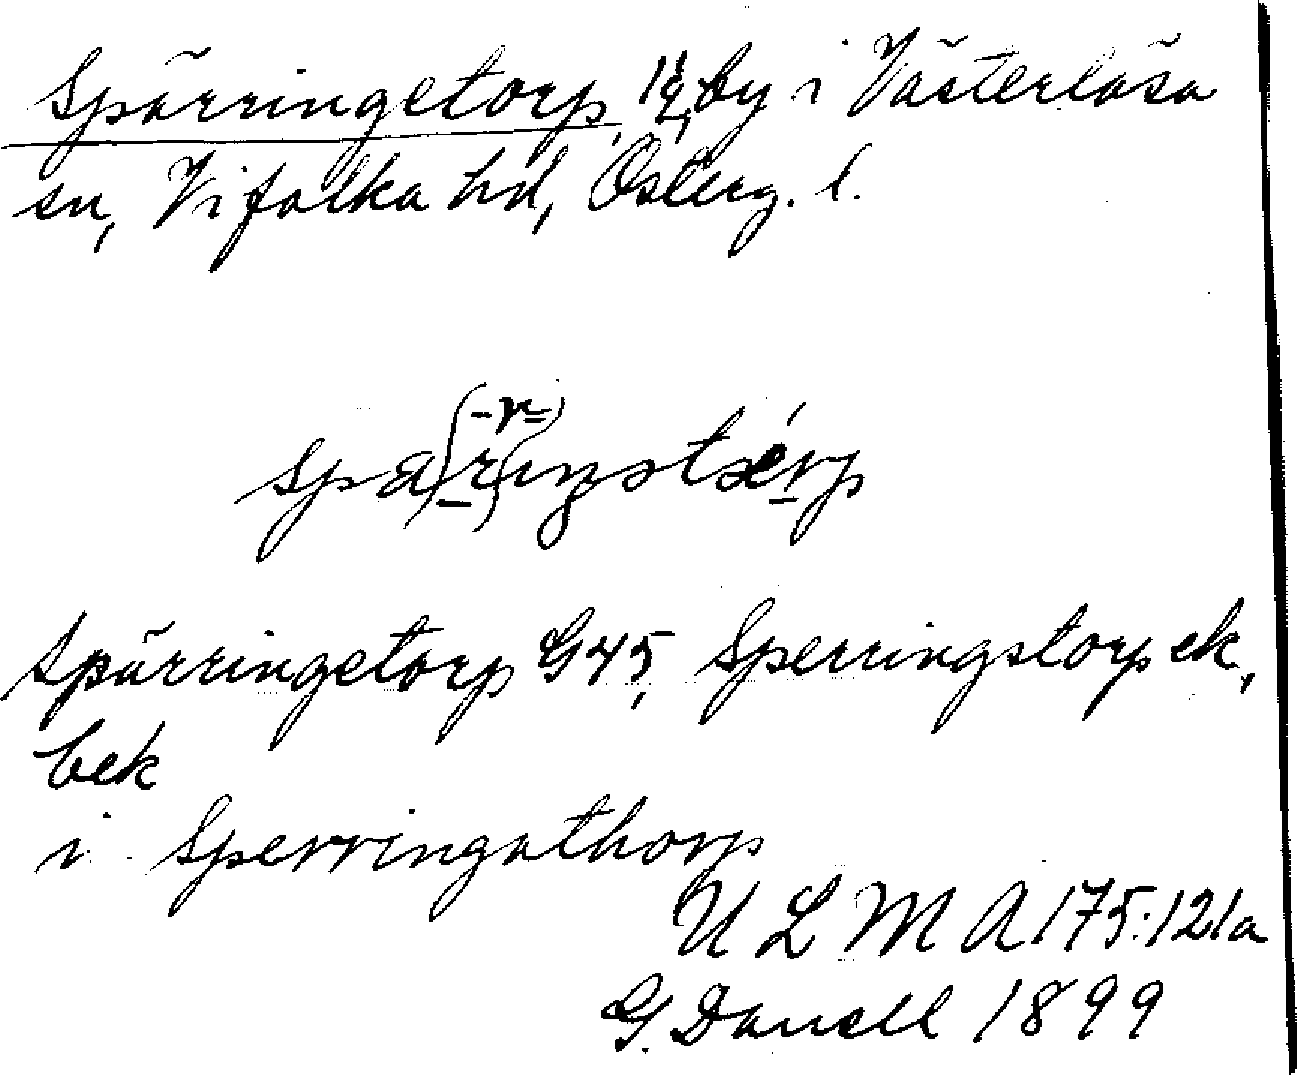 Spärringetorp, 1½, by i Västerlösa
sn, Vifolka hd, Österg. l.
(-r-)
Spärringetorp G45, Sperringstorp ek,
bek
i Sperringathorp
U L M A 175:121a
G. Danell 1899